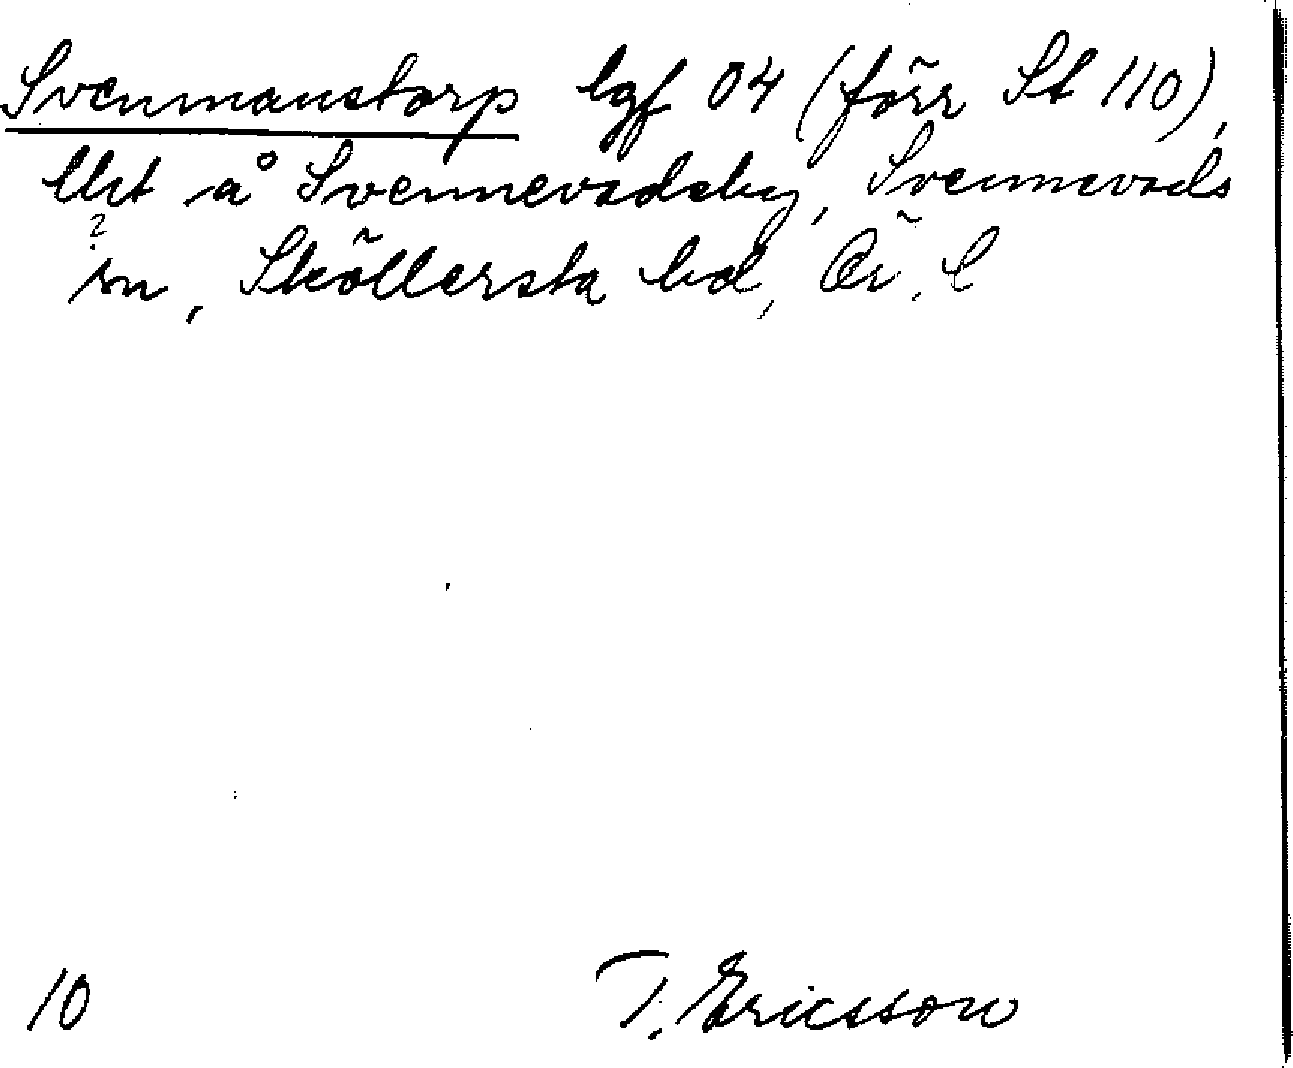 Svenmanstorp lgf 04 (förr St 110),
Uet å Svennevadsby, Svennevads
?
sn, Sköllersta hd, Ör. l
10 T. Ericsson